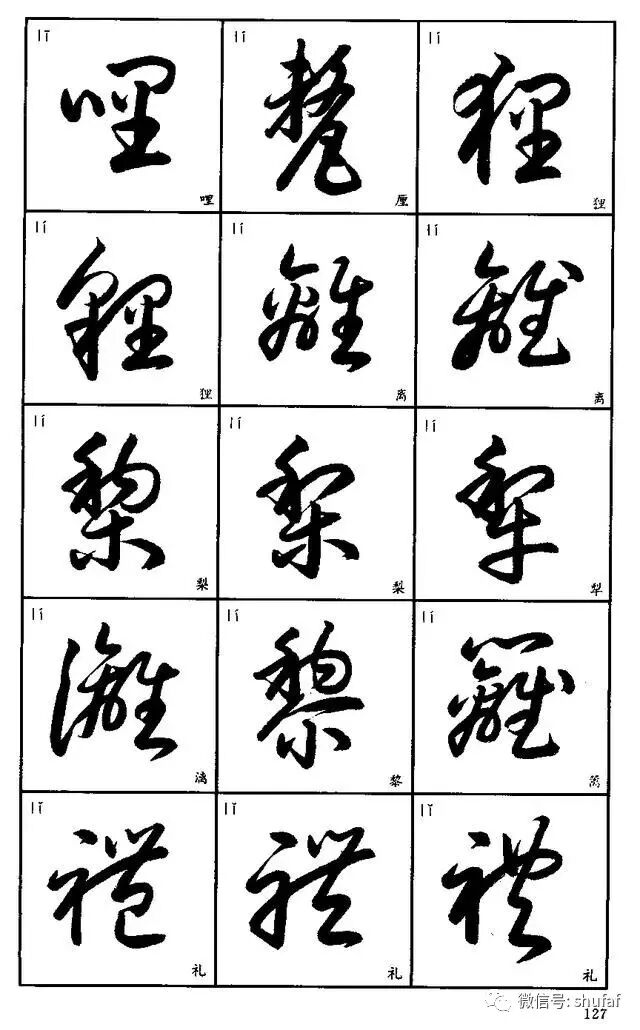 lī lí lí
哩 狸
哩 厘 狸
lí lí lí
貍 離 離
狸 离 离
lí lí lí
棃 梨 犁
梨 梨 犁
lí lí lí
灕 黎 籬
漓 黎 篱
lǐ lǐ lǐ
禮 禮 禮
礼 礼 礼
微信号: shufaf
127